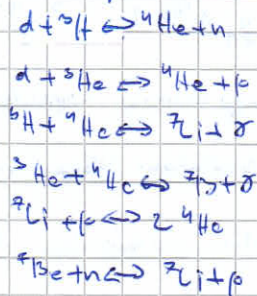 d + ³H ↔ ⁴He + n
d + ³He ↔ ⁴He + p
³H + ⁴He ↔ ⁷Li + γ
³He + ⁴He ↔ ⁷B + γ
⁷Li + p ↔ 2 ⁴He
⁷Be + n ↔ ⁷Li + p